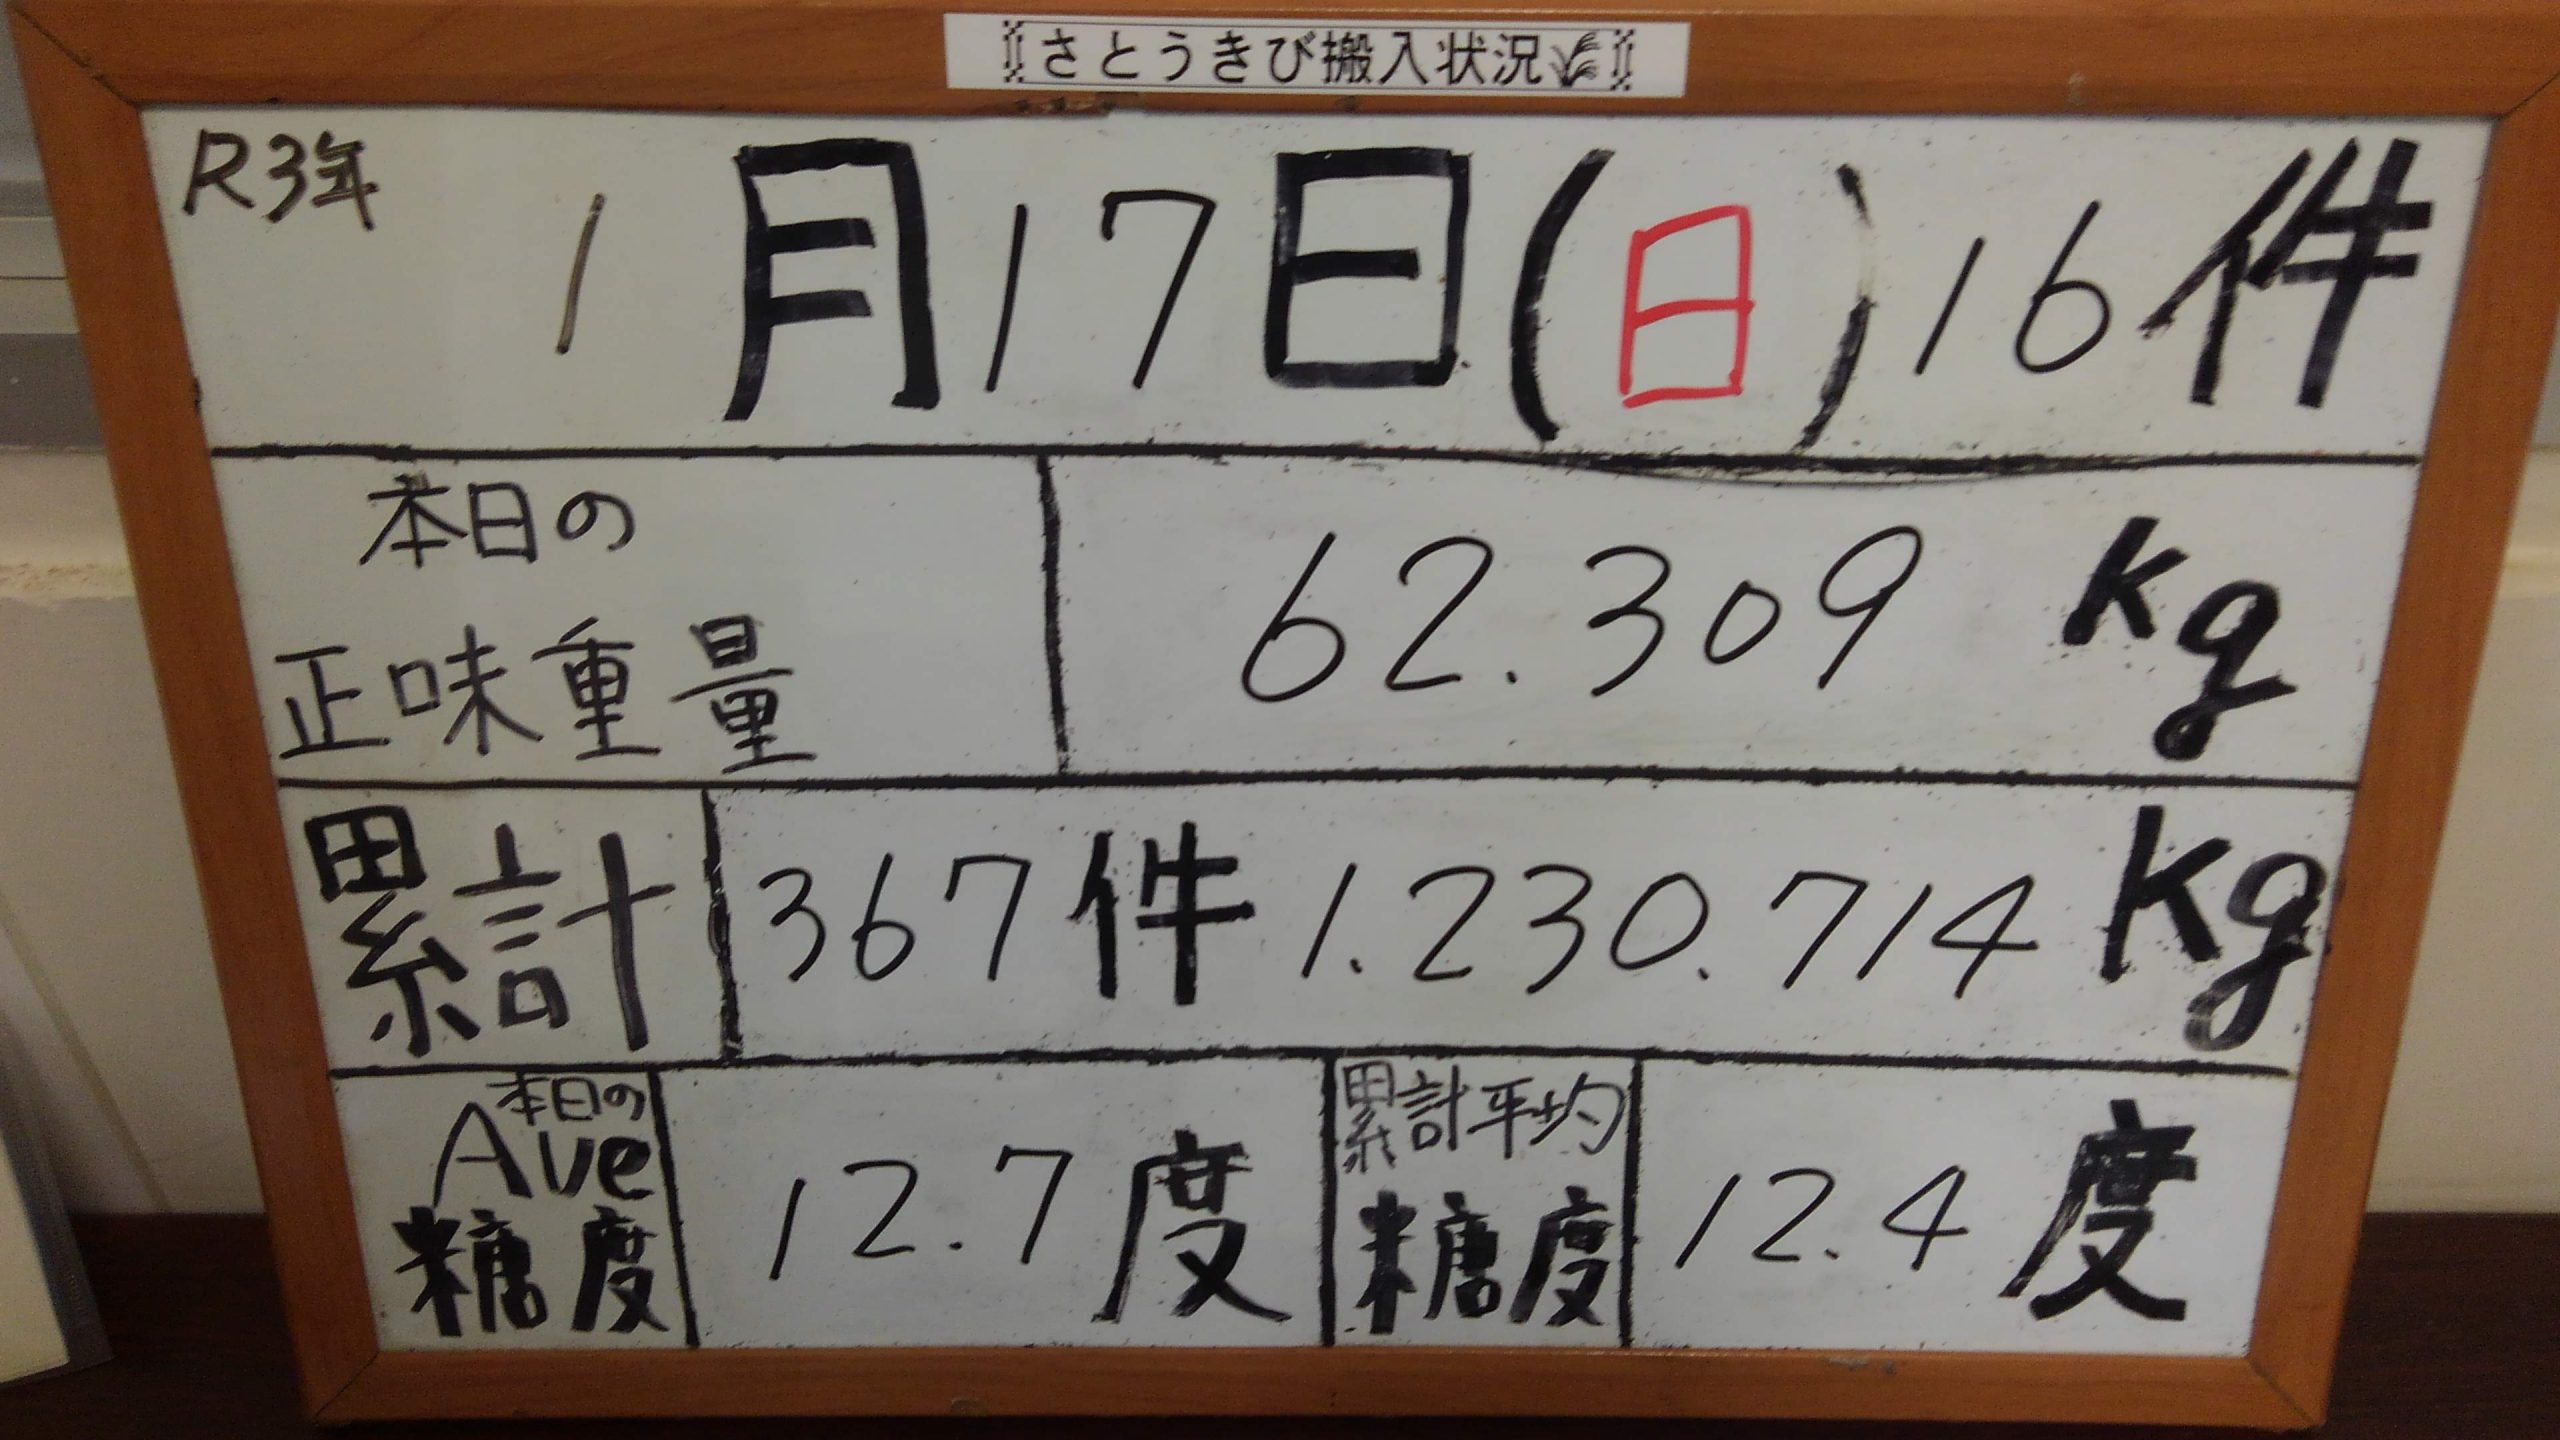 さとうきび搬入状況
R3年
1月17日(日)16件
本日の
正味重量 62.309 kg
累計 367件 1.230.714 kg
本日の
Ave
糖度 12.7度
累計平均
糖度 12.4度